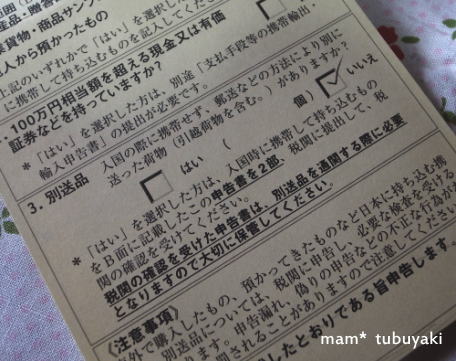 産品・贈答
貨物・商品サン
他人から預かったもの
上記のいずれかで「はい」を選択した
に携帯して持ち込むものを記入してくださ
100万円相当額を超える現金又は有価
証券などを持っていますか?
*「はい」を選択した方は、別途「支払手段等の携帯輸出・
輸入申告書」の提出が必要です。
3. 別送品 入国の際に携帯せず、郵送などの方法により別に
送った荷物(引越荷物を含む。)がありますか?
はい ( 個) いいえ
*「はい」を選択した方は、入国時に携帯して持ち込むもの
をB面に記載したこの申告書を2部、税関に提出して、税
関の確認を受けてください。
税関の確認を受けた申告書は、別送品を通関する際に必要
となりますので大切に保管してください。
《注意事項》
海外で購入したもの、預かってきたものなど日本に持ち込む携
別送品については、税関に申告し、必要な検査を受ける
ります。申告漏れ、偽りの申告などの不正な行為が
されることがありますので注意してください。
したとおりである旨申告します。
mam* tubuyaki